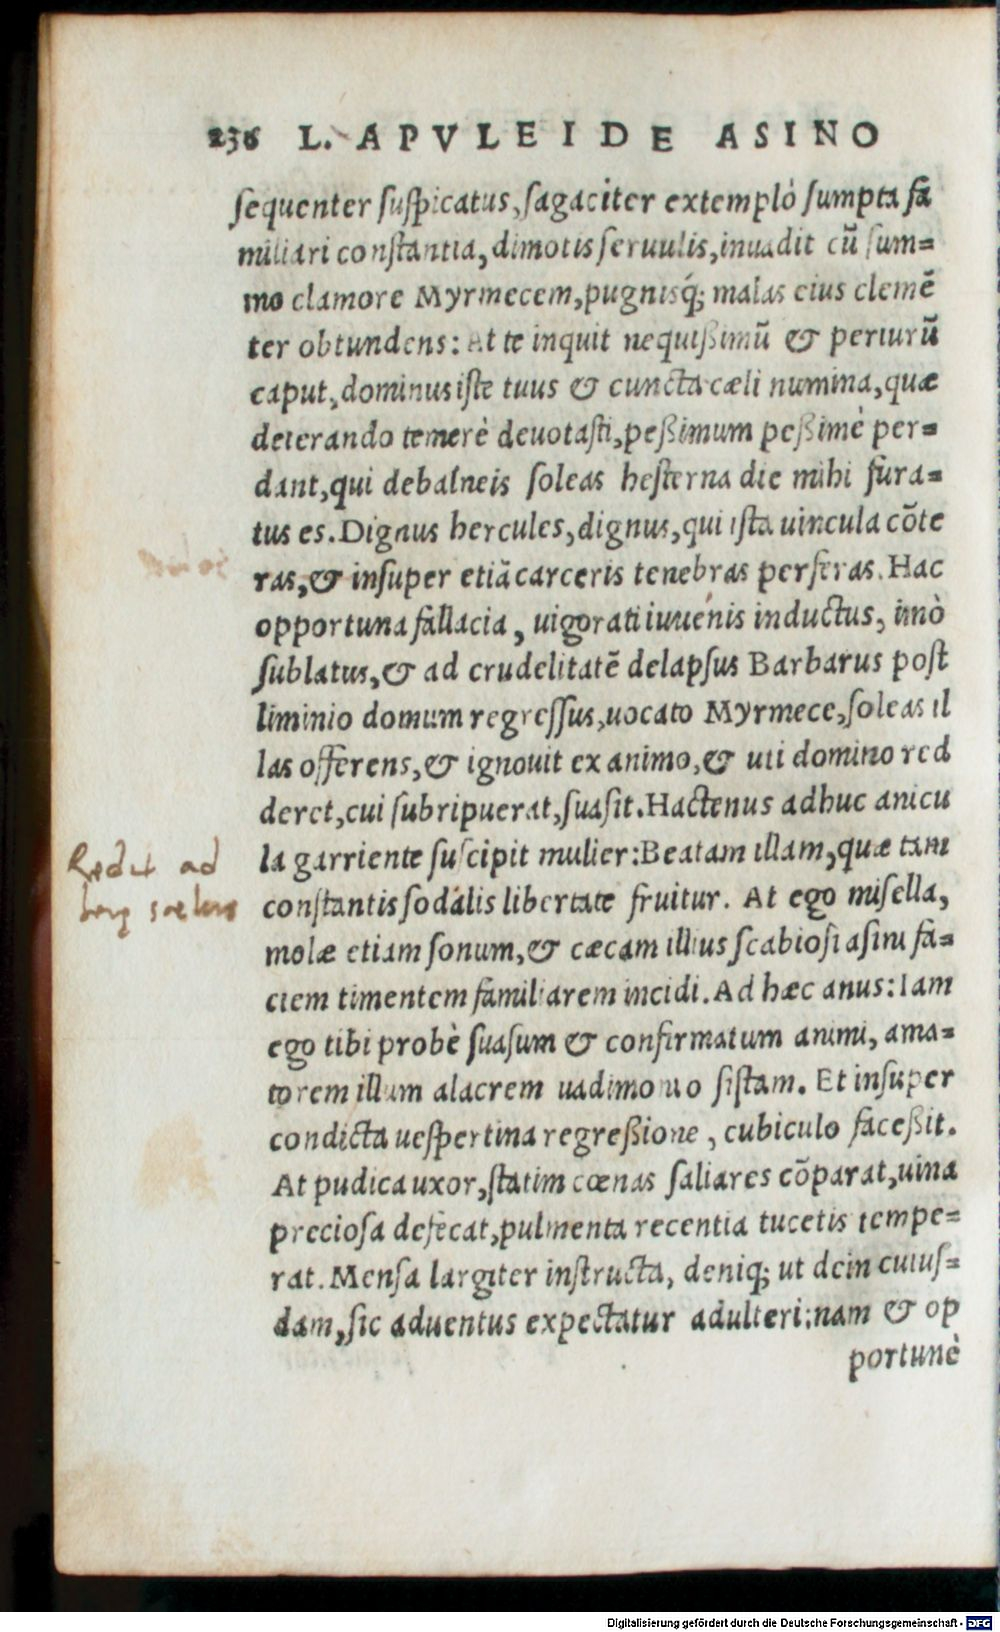 236 L. APVLEI DE ASINO
ſequenter ſuſpicatus, ſagaciter extemplò ſumpta fa
miliari conſtantia, dimotis ſeruulis, inuadit cũ ſum=
mo clamore Myrmecem, pugnisq́; malas eius clemẽ
ter obtundens: At te inquit nequißimũ & periurũ
caput, dominus iſte tuus & cuncta cæli numina, quæ
deierando temerè deuotaſti, peßimum peßimè per=
dant, qui debalneis ſoleas heſterna die mihi fura=
tus es. Dignus hercules, dignus, qui iſta uincula cõte
ras, & inſuper etiã carceris tenebras perferas. Hac
opportuna fallacia, uigorati iuuenis inductus, imò
ſublatus, & ad crudelitatẽ delapſus Barbarus poſt
liminio domum regreſſus, uocato Myrmece, ſoleas il
las offerens, & ignouit ex animo, & uti domino red
deret, cui ſubripuerat, ſuaſit. Hactenus adhuc anicu
la garriente ſuſcipit mulier: Beatam illam, quæ tam
conſtantis ſodalis libertate fruitur. At ego miſella,
molæ etiam ſonum, & cæcam illius ſcabioſi aſini fa=
ciem timentem familiarem incidi. Ad hæc anus: Iam
ego tibi probè ſuaſum & confirmatum animi, ama=
torem illum alacrem uadimonio ſiſtam. Et inſuper
condicta ueſpertina regreßione, cubiculo faceßit.
At pudica uxor, ſtatim cœnas ſaliares cõparat, uina
precioſa defecat, pulmenta recentia tucetis tempe=
rat. Menſa largiter inſtructa, deniq; ut dein cuiuſ=
dam, ſic aduentus expectatur adulteri: nam & op
portunè
Redit ad
Digitalisierung gefördert durch die Deutsche Forschungsgemeinschaft - DFG